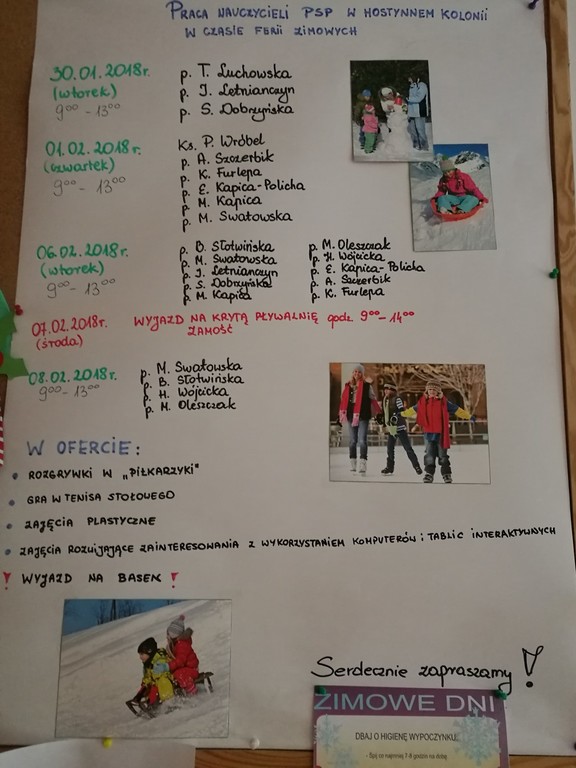 PRACA NAUCZYCIELI PSP W HOSTYNNEM KOLONII
W CZASIE FERII ZIMOWYCH
30.01.2018r.
(wtorek)
9⁰⁰ - 13⁰⁰
p. T. Luchowska
p. J. Letnianczyn
p. S. Dobrzyńska
01.02.2018r.
(czwartek)
9⁰⁰ - 13⁰⁰
Ks. P. Wróbel
p. A. Szczerbik
p. K. Furlepa
p. E. Kapica-Policha
p. M. Kapica
p. M. Swatowska
06.02.2018r.
(wtorek)
9⁰⁰ - 13⁰⁰
p. B. Słotwińska
p. M. Swatowska
p. J. Letnianczyn
p. S. Dobrzyńska
p. M. Kapica
p. M. Oleszczak
p. H. Wójcicka
p. E. Kapica-Policha
p. A. Szczerbik
p. K. Furlepa
07.02.2018r.
(środa)
WYJAZD NA KRYTĄ PŁYWALNIĘ godz. 9⁰⁰ - 14⁰⁰
ZAMOŚĆ
08.02.2018r.
9⁰⁰ - 13⁰⁰
p. M. Swatowska
p. B. Słotwińska
p. H. Wójcicka
p. M. Oleszczak
W OFERCIE:
• ROZGRYWKI W „PIŁKARZYKI"
• GRA W TENISA STOŁOWEGO
• ZAJĘCIA PLASTYCZNE
• ZAJĘCIA ROZWIJAJĄCE ZAINTERESOWANIA Z WYKORZYSTANIEM KOMPUTERÓW i TABLIC INTERAKTYWNYCH
! WYJAZD NA BASEN !
Serdecznie zapraszamy!
ZIMOWE DNI
DBAJ O HIGIENĘ WYPOCZYNKU.
- Śpij co najmniej 7-8 godzin na dobę